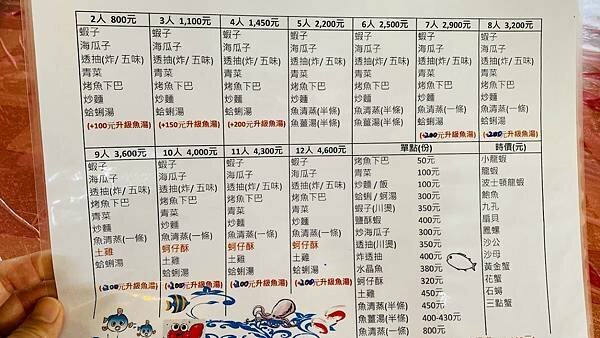 2人 800元
蝦子
海瓜子
透抽(炸/五味)
青菜
烤魚下巴
炒麵
蛤蜊湯
(+100元升級魚湯)
3人 1,100元
蝦子
海瓜子
透抽(炸/五味)
青菜
烤魚下巴
炒麵
蛤蜊湯
(+150元升級魚湯)
4人 1,450元
蝦子
海瓜子
透抽(炸/五味)
青菜
烤魚下巴
炒麵
蛤蜊湯
(+200元升級魚湯)
5人 2,200元
蝦子
海瓜子
透抽(炸/五味)
青菜
烤魚下巴
炒麵
魚清蒸(半條)
魚薑湯(半條)
6人 2,500元
蝦子
海瓜子
透抽(炸/五味)
青菜
烤魚下巴
炒麵
魚清蒸(半條)
魚薑湯(半條)
7人 2,900元
蝦子
海瓜子
透抽(炸/五味)
青菜
烤魚下巴
炒麵
魚清蒸(一條)
蛤蜊湯
00元升級魚湯)
8人 3,200元
蝦子
海瓜子
透抽(炸/五味)
青菜
烤魚下巴
炒麵
魚清蒸(一條)
蛤蜊湯
00元升級魚湯)
9人 3,600元
蝦子
海瓜子
透抽(炸/五味)
烤魚下巴
青菜
炒麵
魚清蒸(一條)
土雞
蛤蜊湯
00元升級魚湯)
10人 4,000元
蝦子
海瓜子
透抽(炸/五味)
烤魚下巴
青菜
炒麵
魚清蒸(一條)
蚵仔酥
土雞
蛤蜊湯
00元升級魚湯)
11人 4,300元
蝦子
海瓜子
透抽(炸/五味)
烤魚下巴
青菜
炒麵
魚清蒸(一條)
蚵仔酥
土雞
蛤蜊湯
00元升級魚湯)
12人 4,600元
蝦子
海瓜子
透抽(炸/五味)
烤魚下巴
青菜
炒麵
魚清蒸(一條)
蚵仔酥
土雞
蛤蜊湯
00元升級魚湯)
單點(份)
烤魚下巴 50元
青菜 100元
炒麵/飯 100元
蛤蜊/蚵湯 300元
蝦子(川燙) 350元
鹽酥蝦 400元
炒海瓜子 300元
透抽(川燙) 350元
炸透抽 400元
水晶魚 380元
蚵仔酥 320元
土雞 450元
魚清蒸(半條) 450元
魚薑湯(半條) 400-430元
魚清蒸(一條) 800元
時價(元)
小龍蝦
龍蝦
波士頓龍蝦
鮑魚
九孔
扇貝
鳳螺
沙公
沙母
黃金蟹
花蟹
石蟳
三點蟹